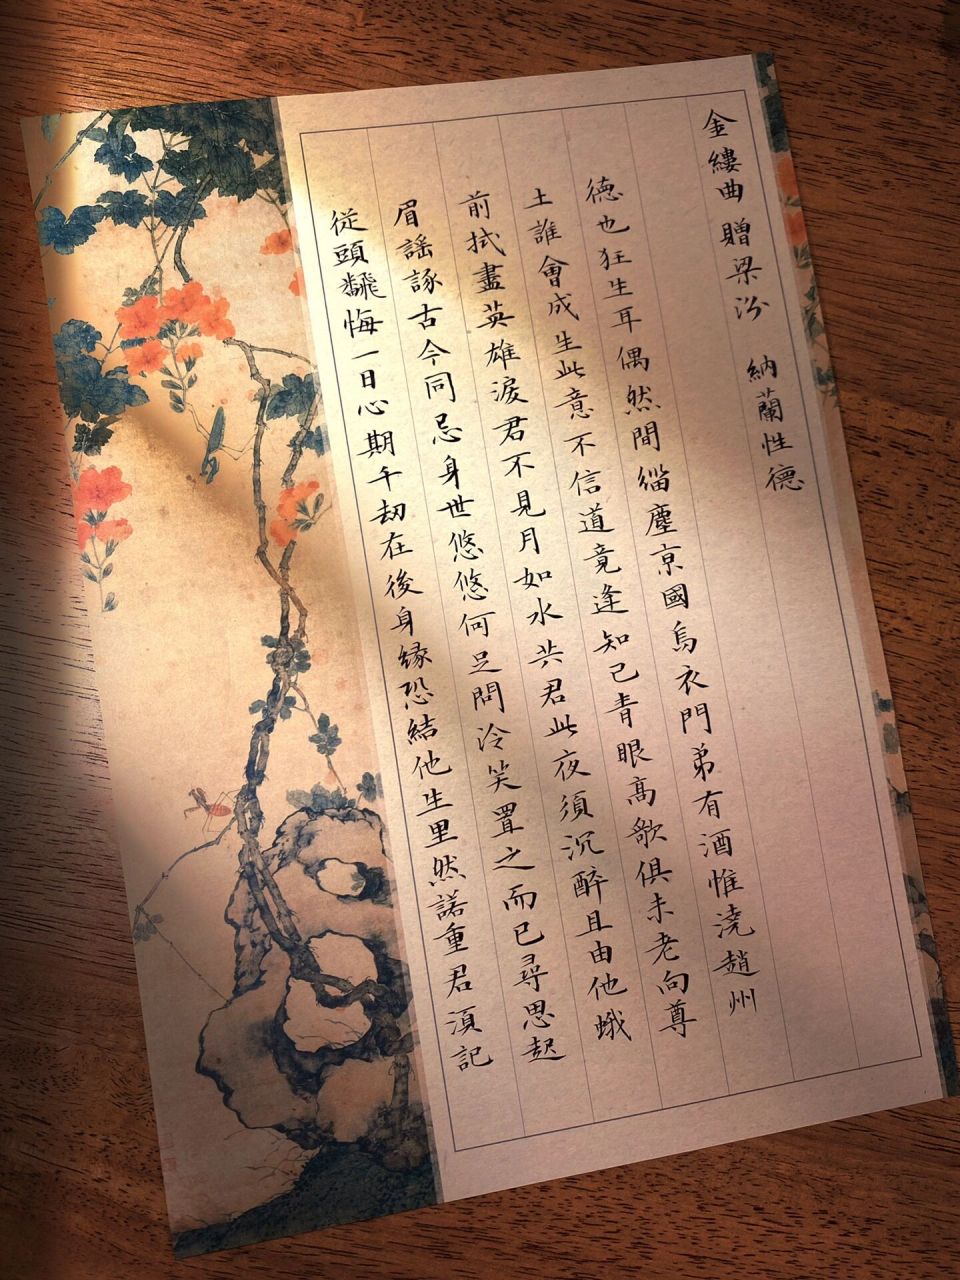 金縷曲 贈梁汾 納蘭性德
德也狂生耳偶然間緇塵京國烏衣門弟有酒惟澆趙州
土誰會成生此意不信道竟逢知己青眼高歌俱未老向尊
前拭盡英雄淚君不見月如水共君此夜須沉醉且由他蛾
眉謠諑古今同忌身世悠悠何足問冷笑置之而已尋思起
從頭飜悔一日心期千劫在後身緣恐結他生里然諾重君須記